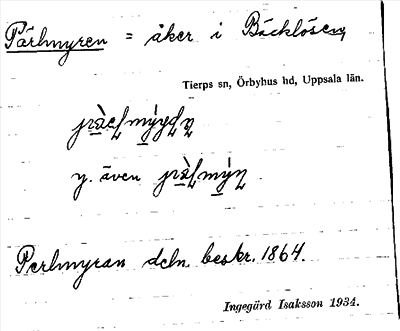 Pärlmyren = åker i Bäcklösen
Tierps sn, Örbyhus hd, Uppsala län.
y. även
Perlmyran deln. beskr. 1864.
Ingegärd Isaksson 1934.